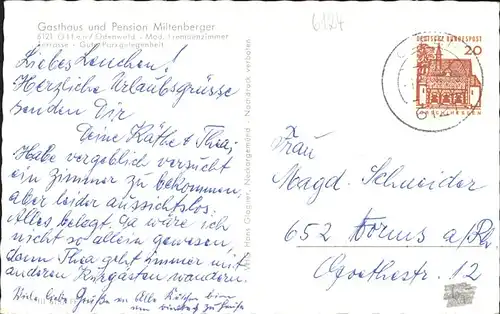 Gasthaus und Pension Miltenberger
6121 Olfen / Odenwald - Mod. Fremdenzimmer
Terrasse - Gute Parkgelegenheit
6124
Liebes Lenchen!
Herzliche Urlaubsgrüsse
senden Dir
Deine Käthe & Thea.
Habe vergeblich versucht
ein Zimmer zu bekommen,
aber leider aussichtslos.
Alles belegt. Da wäre ich
nicht so allein gewesen,
denn Thea geht immer mit
anderen Kurgästen wandern.
Viele liebe Grüße an Alle
Hans Nachdruck verboten
DEUTSCHE BUNDESPOST
20
Frau
Magd. Schneider
652 Worms a/Rh.
Goethestr. 12